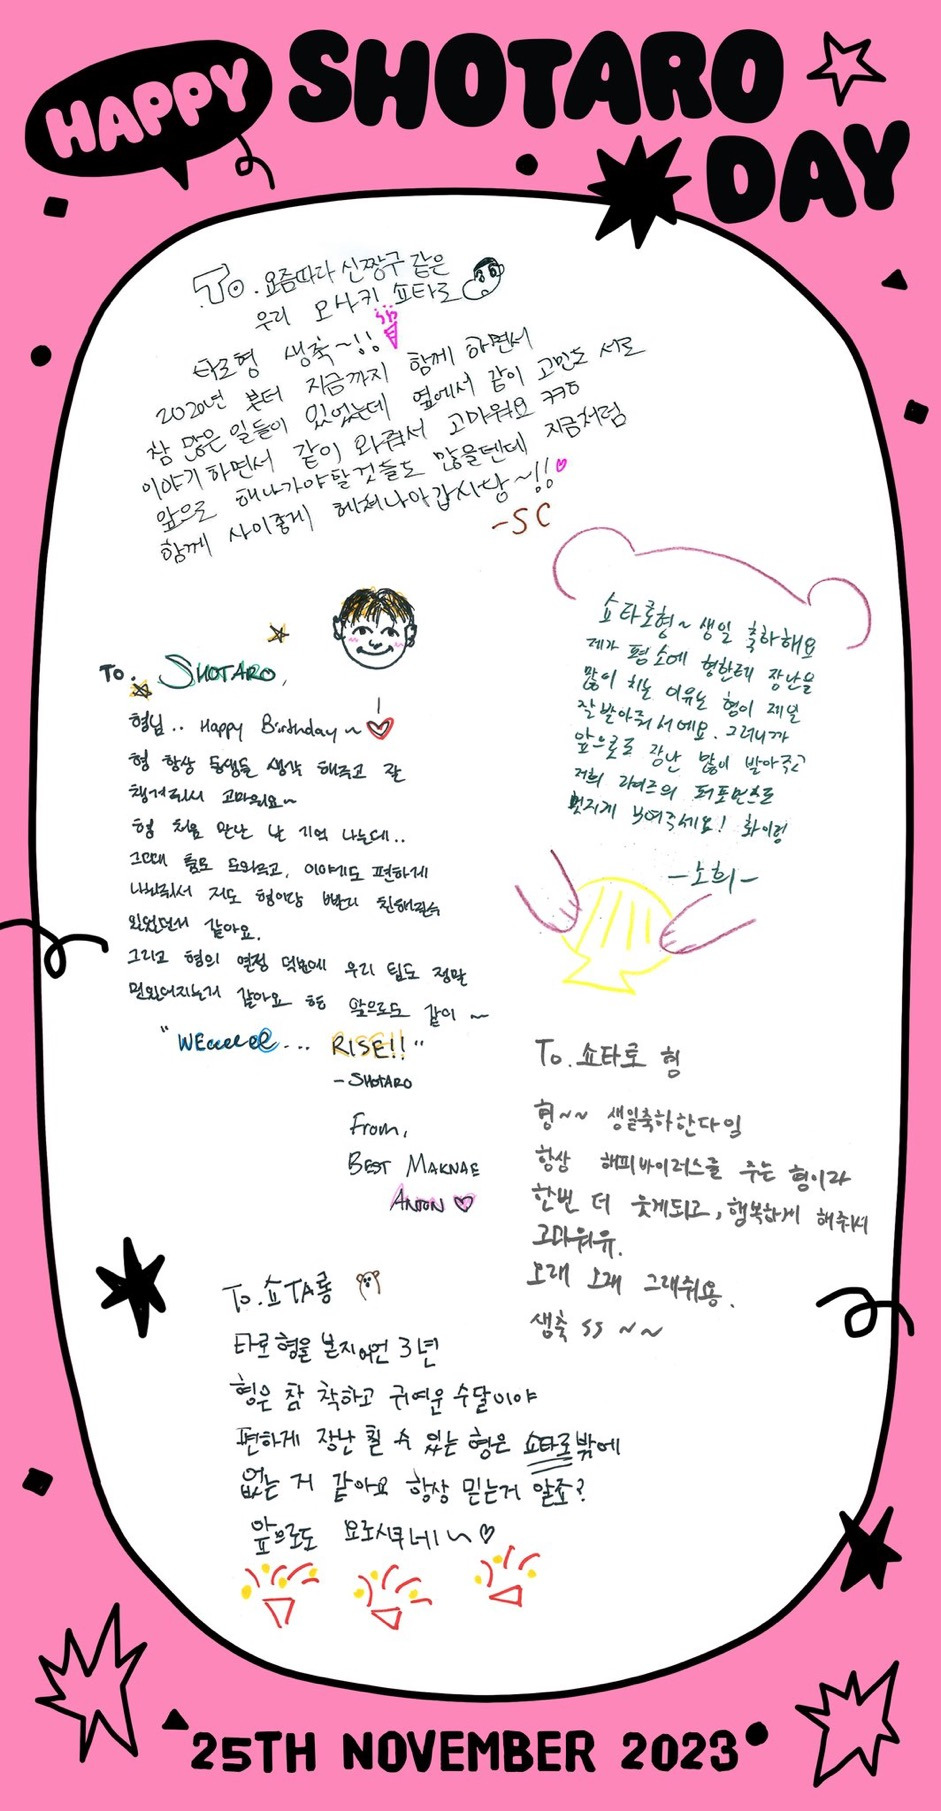 HAPPY SHOTARO
DAY
To. 요즘따라 신짱구 같은
우리 오사키 쇼타로
타로형 생축~!!
2020년 부터 지금까지 함께 하면서
참 많은 일들이 있었는데 옆에서 같이 고민도 서로
이야기 하면서 같이 와줘서 고마워요 ㅋㅋㅎ
앞으로 해나가야할것들도 많을텐데 지금처럼
함께 사이좋게 헤쳐나아갑시당~!!
-SC
쇼타로형~ 생일 축하해요
제가 평소에 형한테 장난을
많이 치는 이유는 형이 제일
잘 받아줘서에요. 그러니까
앞으로도 장난 많이 받아주고
저희 라이즈의 퍼포먼스도
멋지게 보여주세요! 화이팅
-소희-
To. SHOTARO,
형님.. Happy Birthday~
형 항상 동생들 생각 해주고 잘
챙겨줘서 고마워요~
형 처음 만난 날 기억 나는데..
그때 춤도 도와주고, 이야기도 편하게
나눠줘서 저도 형이랑 빨리 친해질수
있었던거 같아요.
그리고 형의 열정 덕분에 우리 팀도 정말
멋있어지는거 같아요 형 앞으로도 같이 ~
"WEeeeee... RISE!!"
- SHOTARO
From,
BEST MAKNAE
ANTON ♡
To. 쇼타로 형
형~~ 생일축하한다잉
항상 해피바이러스를 주는 형이라
한번 더 웃게되고, 행복하게 해줘서
고마워유.
오래 오래 그래줘용.
생축 ㅎㅎ ~~
To. 쇼TA롱
타로형을 본지 어언 3년
형은 참 착하고 귀여운 수달이야
편하게 장난 칠 수 있는 형은 쇼타로밖에
없는 거 같아요 항상 믿는거 알죠?
앞으로도 요로시쿠네~ ♡
25TH NOVEMBER 2023